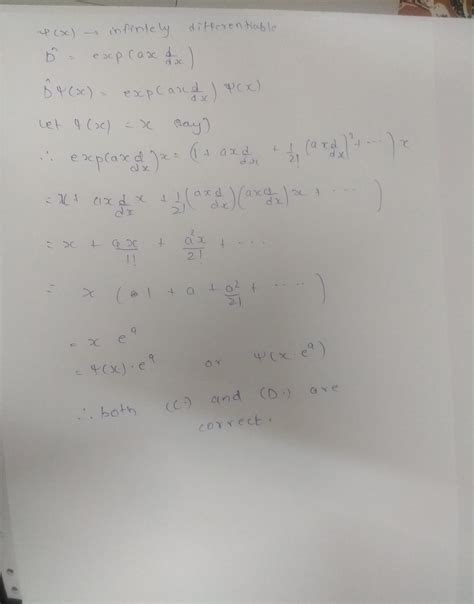 ψ(x) → infinitely differentiable
D̂ = exp(ax d/dx)
D̂ψ(x) = exp(ax d/dx) ψ(x)
Let ψ(x) = x say)
∴ exp(ax d/dx)x = (1 + ax d/dx + 1/2! (ax d/dx)² + ....) x
= x + ax d/dx x + 1/2! (ax d/dx)(ax d/dx) x + ....
= x + ax/1! + a²x/2! + ....
= x (1 + a + a²/2! + ....)
= x e^a
= ψ(x)·e^a or ψ(x e^a)
∴ both (C) and (D.) are
correct.